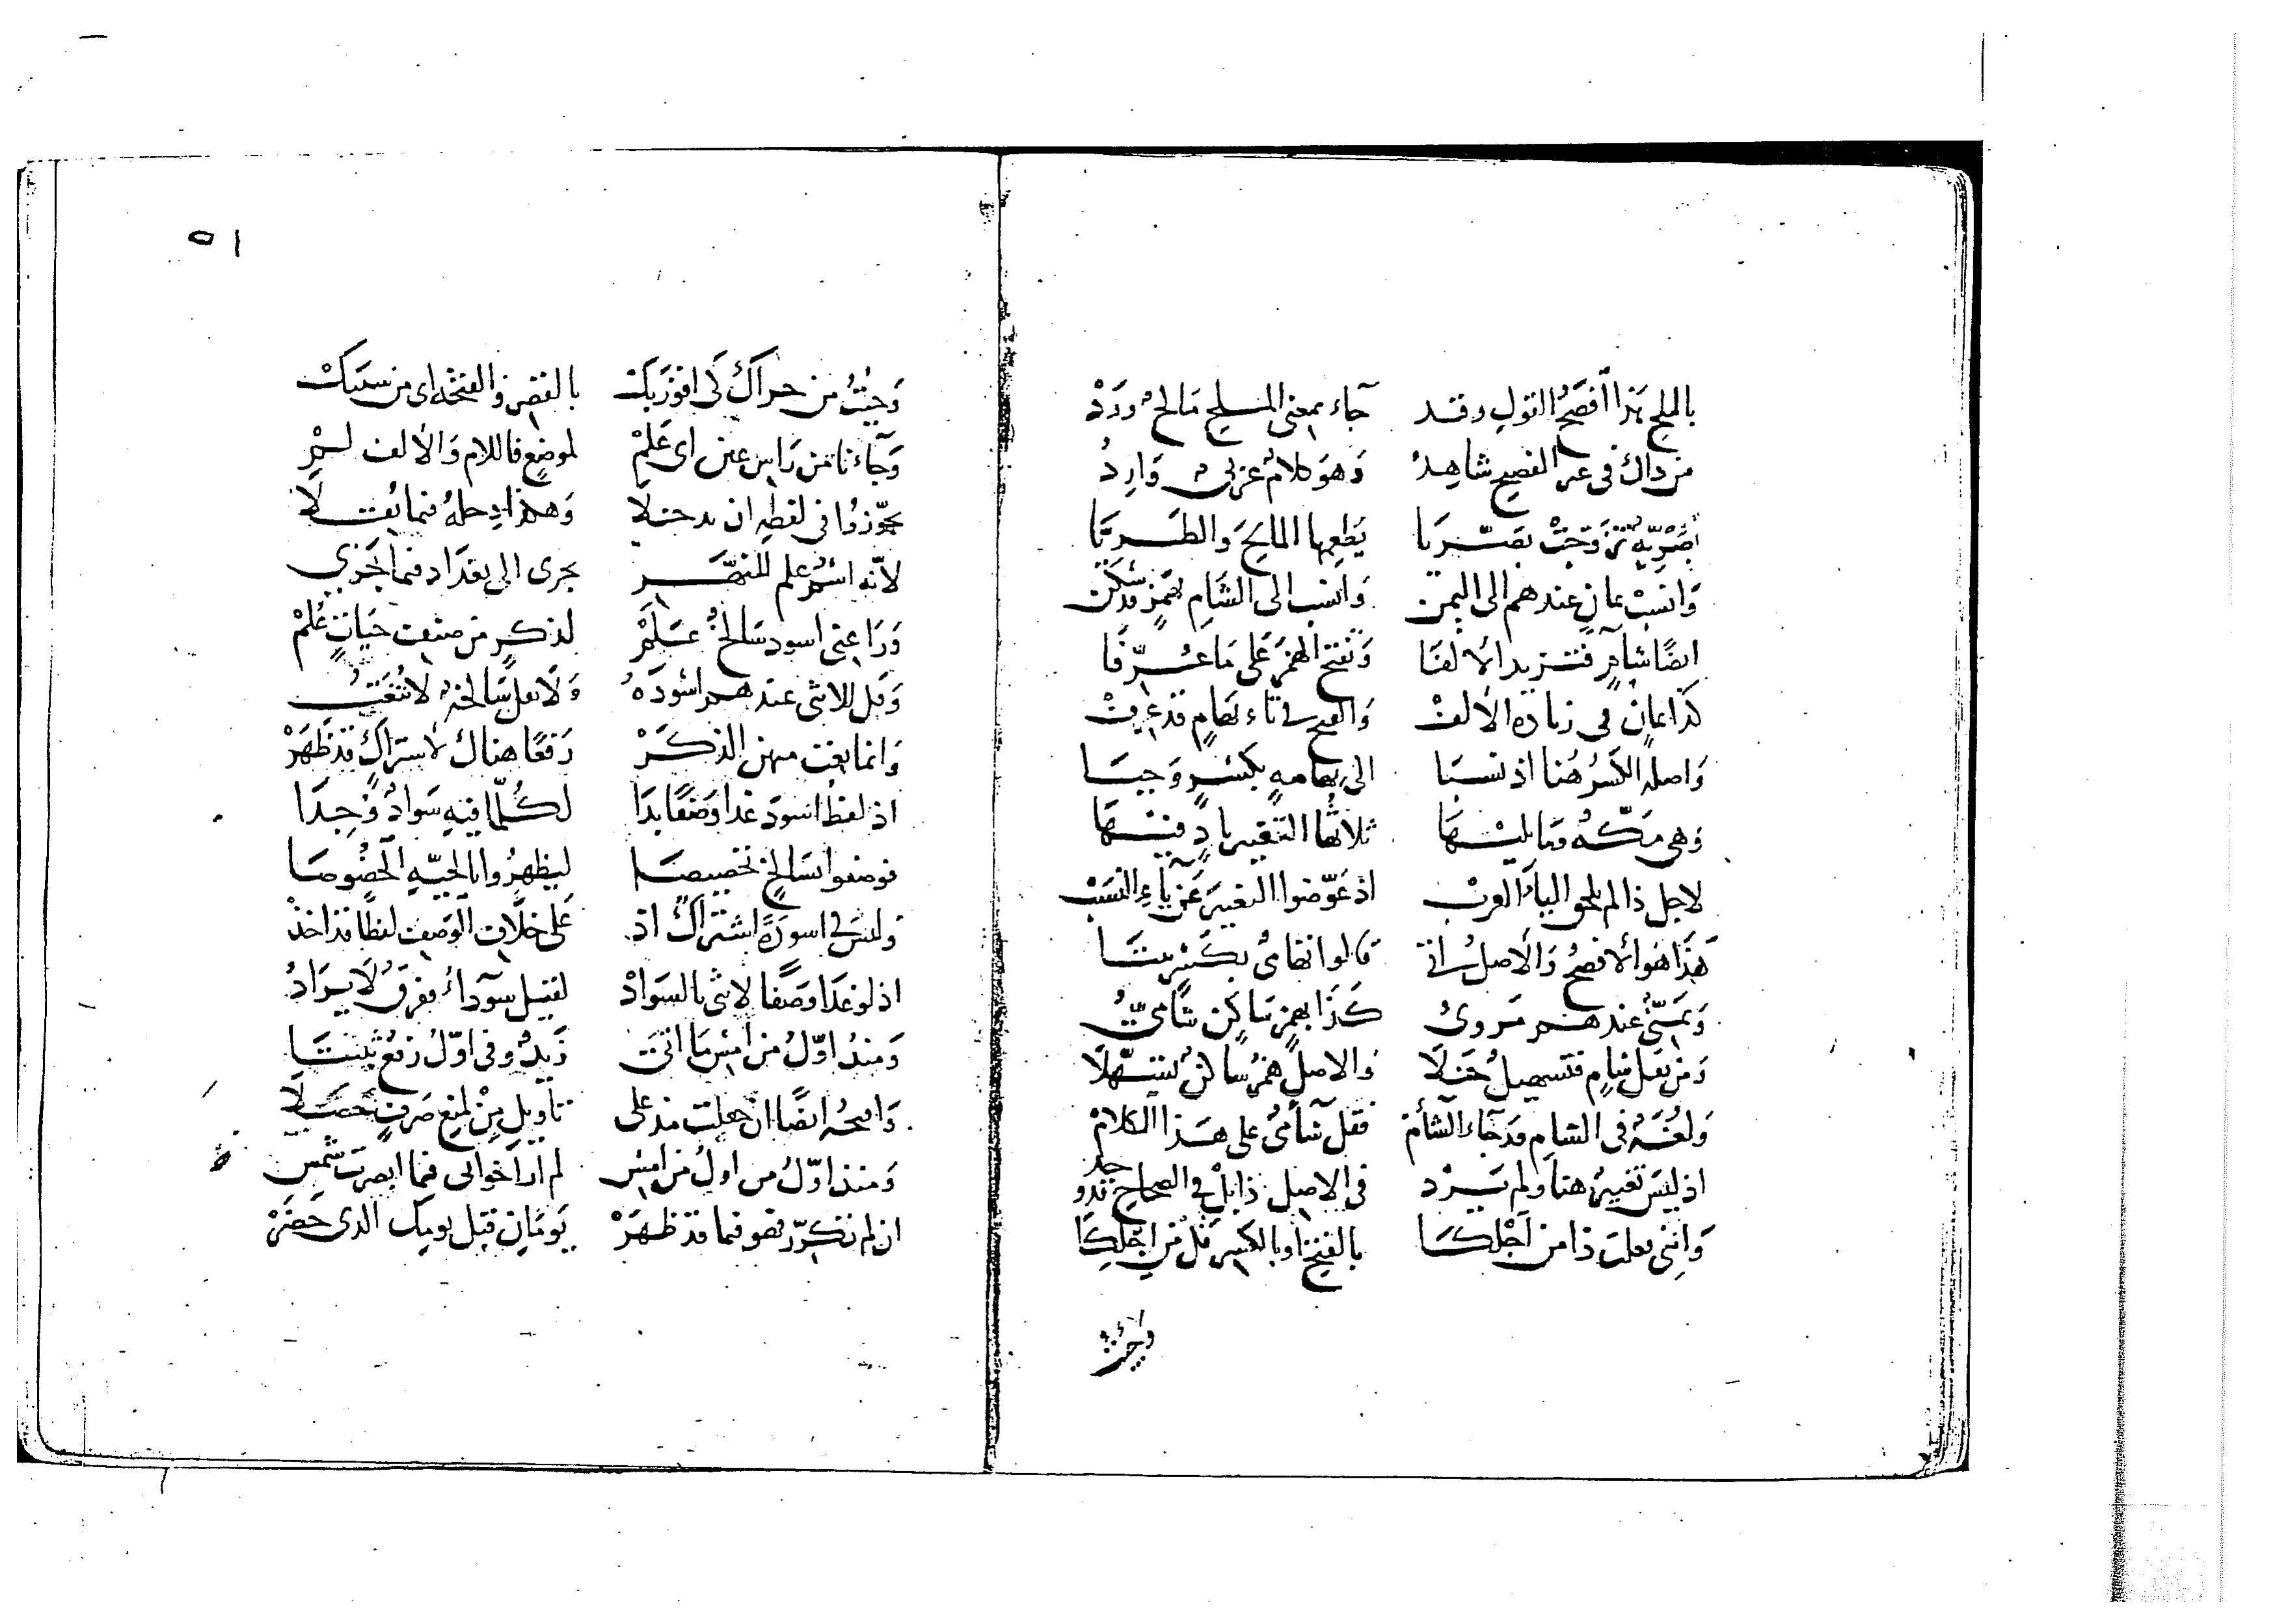 بالملح هذا أفصح القول وقد جاء بمعنى المليح مالح ورد
من ذاك في غير الفصيح شاهد وهو كلام عربي وارد
بصرية تزوجت بصريا يطعمها المالح والطريا
وانسب يمان عندهم الى اليمن وانسب الى الشام بهمز قد سكن
ايضا شآم فتزيد الالفا وتفتح الهمز على ما عرفا
كذا يمان في زيادة الالف والفتح في تاء تهام قد عرف
واصله الكسر هنا اذ نسبا الى تهامة بكسر وجبا
وهي مكة وما يليها ثلاثها التغيير باد فيها
لاجل ذا لم يلحق الياء العرب اذ عوضوا التغيير عن ياء النسب
هذا هو الافصح والاصل اتى قالوا تهامي بكسر ثبتا
ويمني عندهم مروي كذا بهمز ساكن شأمي
ومن يقل شام فتسهيل جلا والاصل همز ساكن تسهلا
ولغة في الشام قد جاء الشآم فقل شآمي على هذا الكلام
اذ ليس تغيير هنا ولم يرد في الاصل ذا بل في الصحاح قد وجد
وانني فعلت ذا من اجلكا بالفتح او بالكسر قل من اجلكا
وجئت
٥١
وجئت من جراك كي افوز بك بالقصر والفتحة اي من سببك
وجاءنا من راس عين اي علم لموضع فاللام والالف لم
يجوزوا في لفظه ان يدخلا وهكذا دجلة فيما نقلا
لانه اسم علم للنهر يجري الى بغداد فيما اجري
وراعني اسود سالخ علم لذكر من صنف حيات علم
وقل للانثى عندهم اسوده ولا تقل سالخة لا تنعت
وانما ينعت منهن الذكر دفعا هناك لاشتراك قد ظهر
اذ لفظ اسود غدا وصفا بدا لكل ما فيه سواد وجدا
فوصفوا بسالخ تخصيصا ليظهروا بالحية الخصوصا
وليس في اسودة اشتراك اذ على خلاف الوصف لفظا قد اخذ
اذ لو غدا وصفا لانثى بالسواد لقيل سوداء ففرق لا يراد
ومنذ اول من امس ما اتى زيد وفي اول رفع ثبتا
وافتحه ايضا ان جعلت منذ على تاويل من لمنع صرف حصلا
ومنذ اول من اول من امس لم ار اخوالي فيما ابصرت شمس
ان لم تكرر فهو فيما قد ظهر يومان قبل يومك الذي حضر